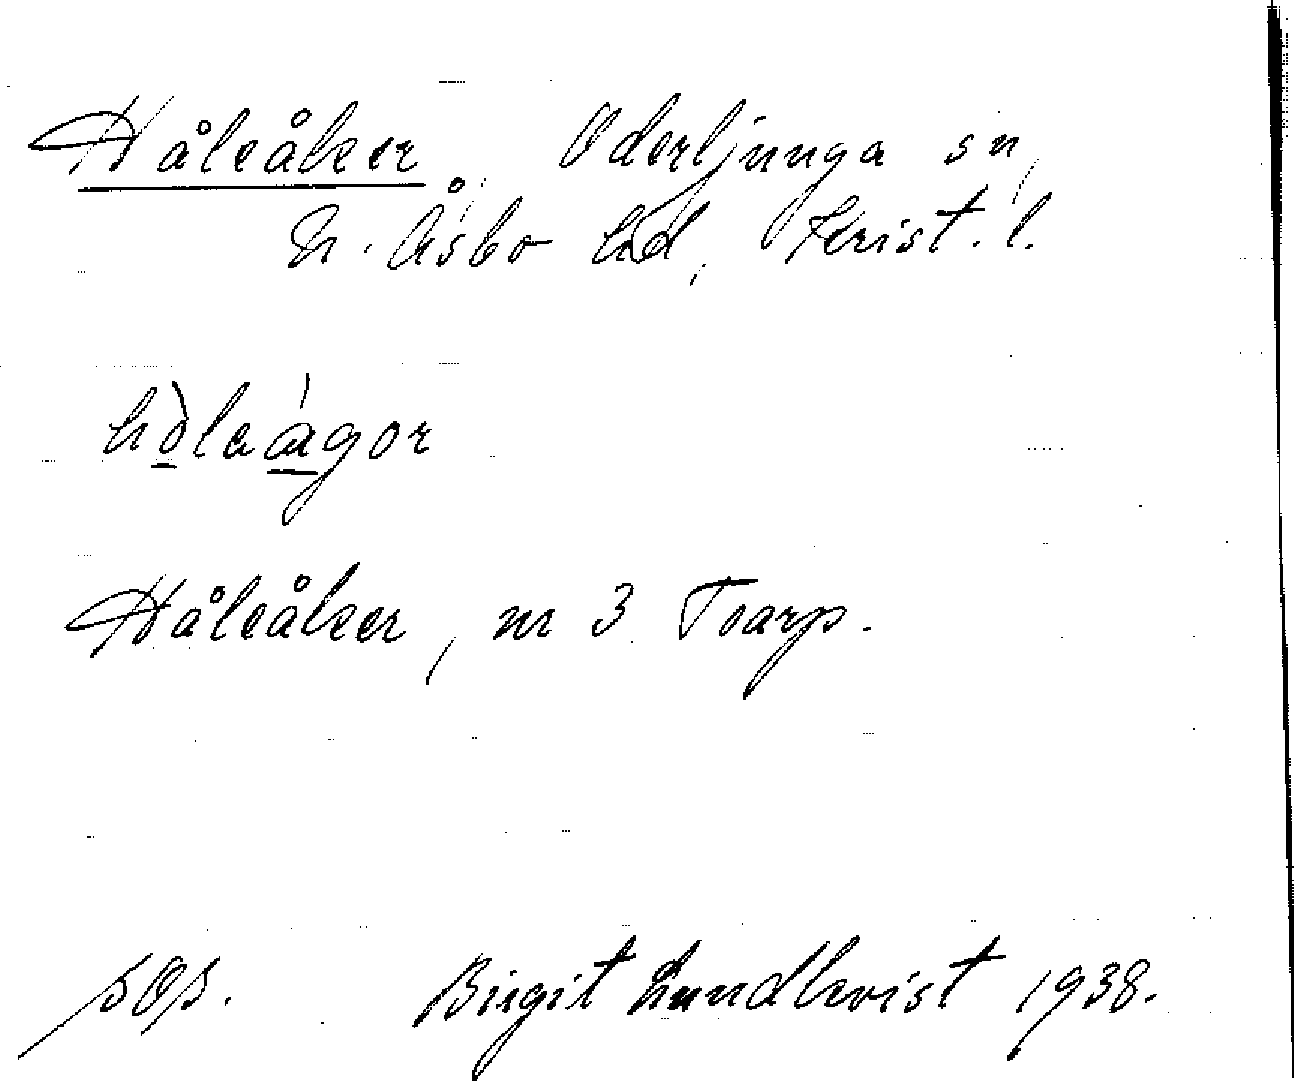 Håleåker, Oderljunga sn,
N. Åsbo hd, Krist. l.
hòlaágor
Håleåker, nr 3 Toarp.
Birgit Lundkvist 1938.